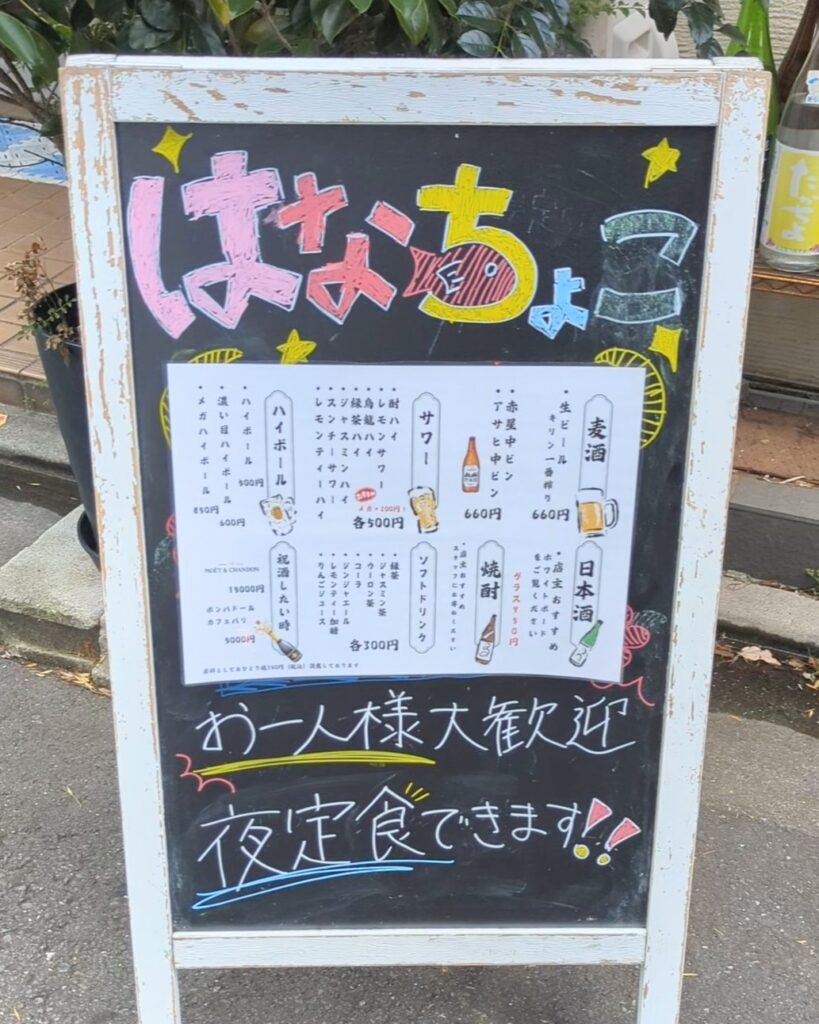 はなちょこ
麦酒
・生ビール
キリン一番搾り
660円
・赤星中ビン
・アサヒ中ビン
660円
サワー
・酎ハイ
・レモンサワー
・烏龍ハイ
・緑茶ハイ
・ジャスミンハイ
・スンチーサワー
・レモンティーハイ
メガ+200円!
各500円
ハイボール
・ハイボール
500円
・濃い目ハイボール
600円
・メガハイボール
850円
日本酒
・店主おすすめ
ホワイトボード
をご覧ください
グラス950円
焼酎
・店主おすすめ
スタッフにお尋ねください
ソフトドリンク
・緑茶
・ジャスミン茶
・ウーロン茶
・コーラ
・ジンジャエール
・レモンティー加糖
・りんごジュース
各300円
祝酒したい時
MOËT & CHANDON
15000円
ポンパドール
カフェパリ
5000円
お一人様大歓迎
夜定食できます!!